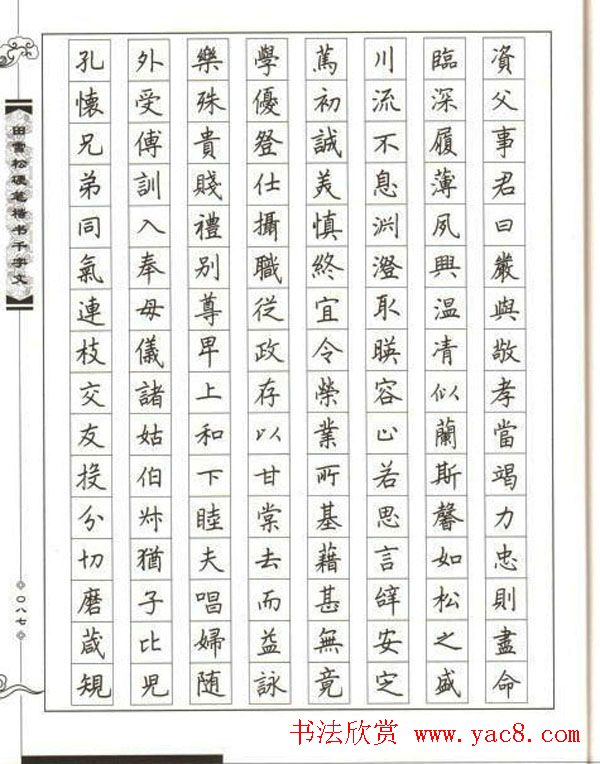 資父事君曰嚴與敬孝當竭力忠則盡命
臨深履薄夙興温凊似蘭斯馨如松之盛
川流不息淵澄取暎容止若思言辝安定
篤初誠美慎終宜令榮業所基藉甚無竟
學優登仕攝職從政存以甘棠去而益詠
樂殊貴賤禮别尊卑上和下睦夫唱婦随
外受傅訓入奉母儀諸姑伯叔猶子比兒
孔懷兄弟同氣連枝交友投分切磨葴規
田雪松硬笔楷书千字文
〇八七
书法欣赏 www.yac8.com